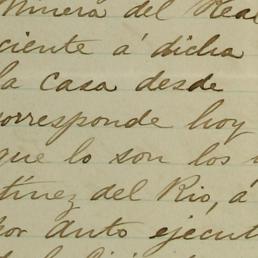 Minera del Real
ciente á dicha
la casa desde
corresponde hoy
que lo son los
tínez del Rio, á
por auto ejecut